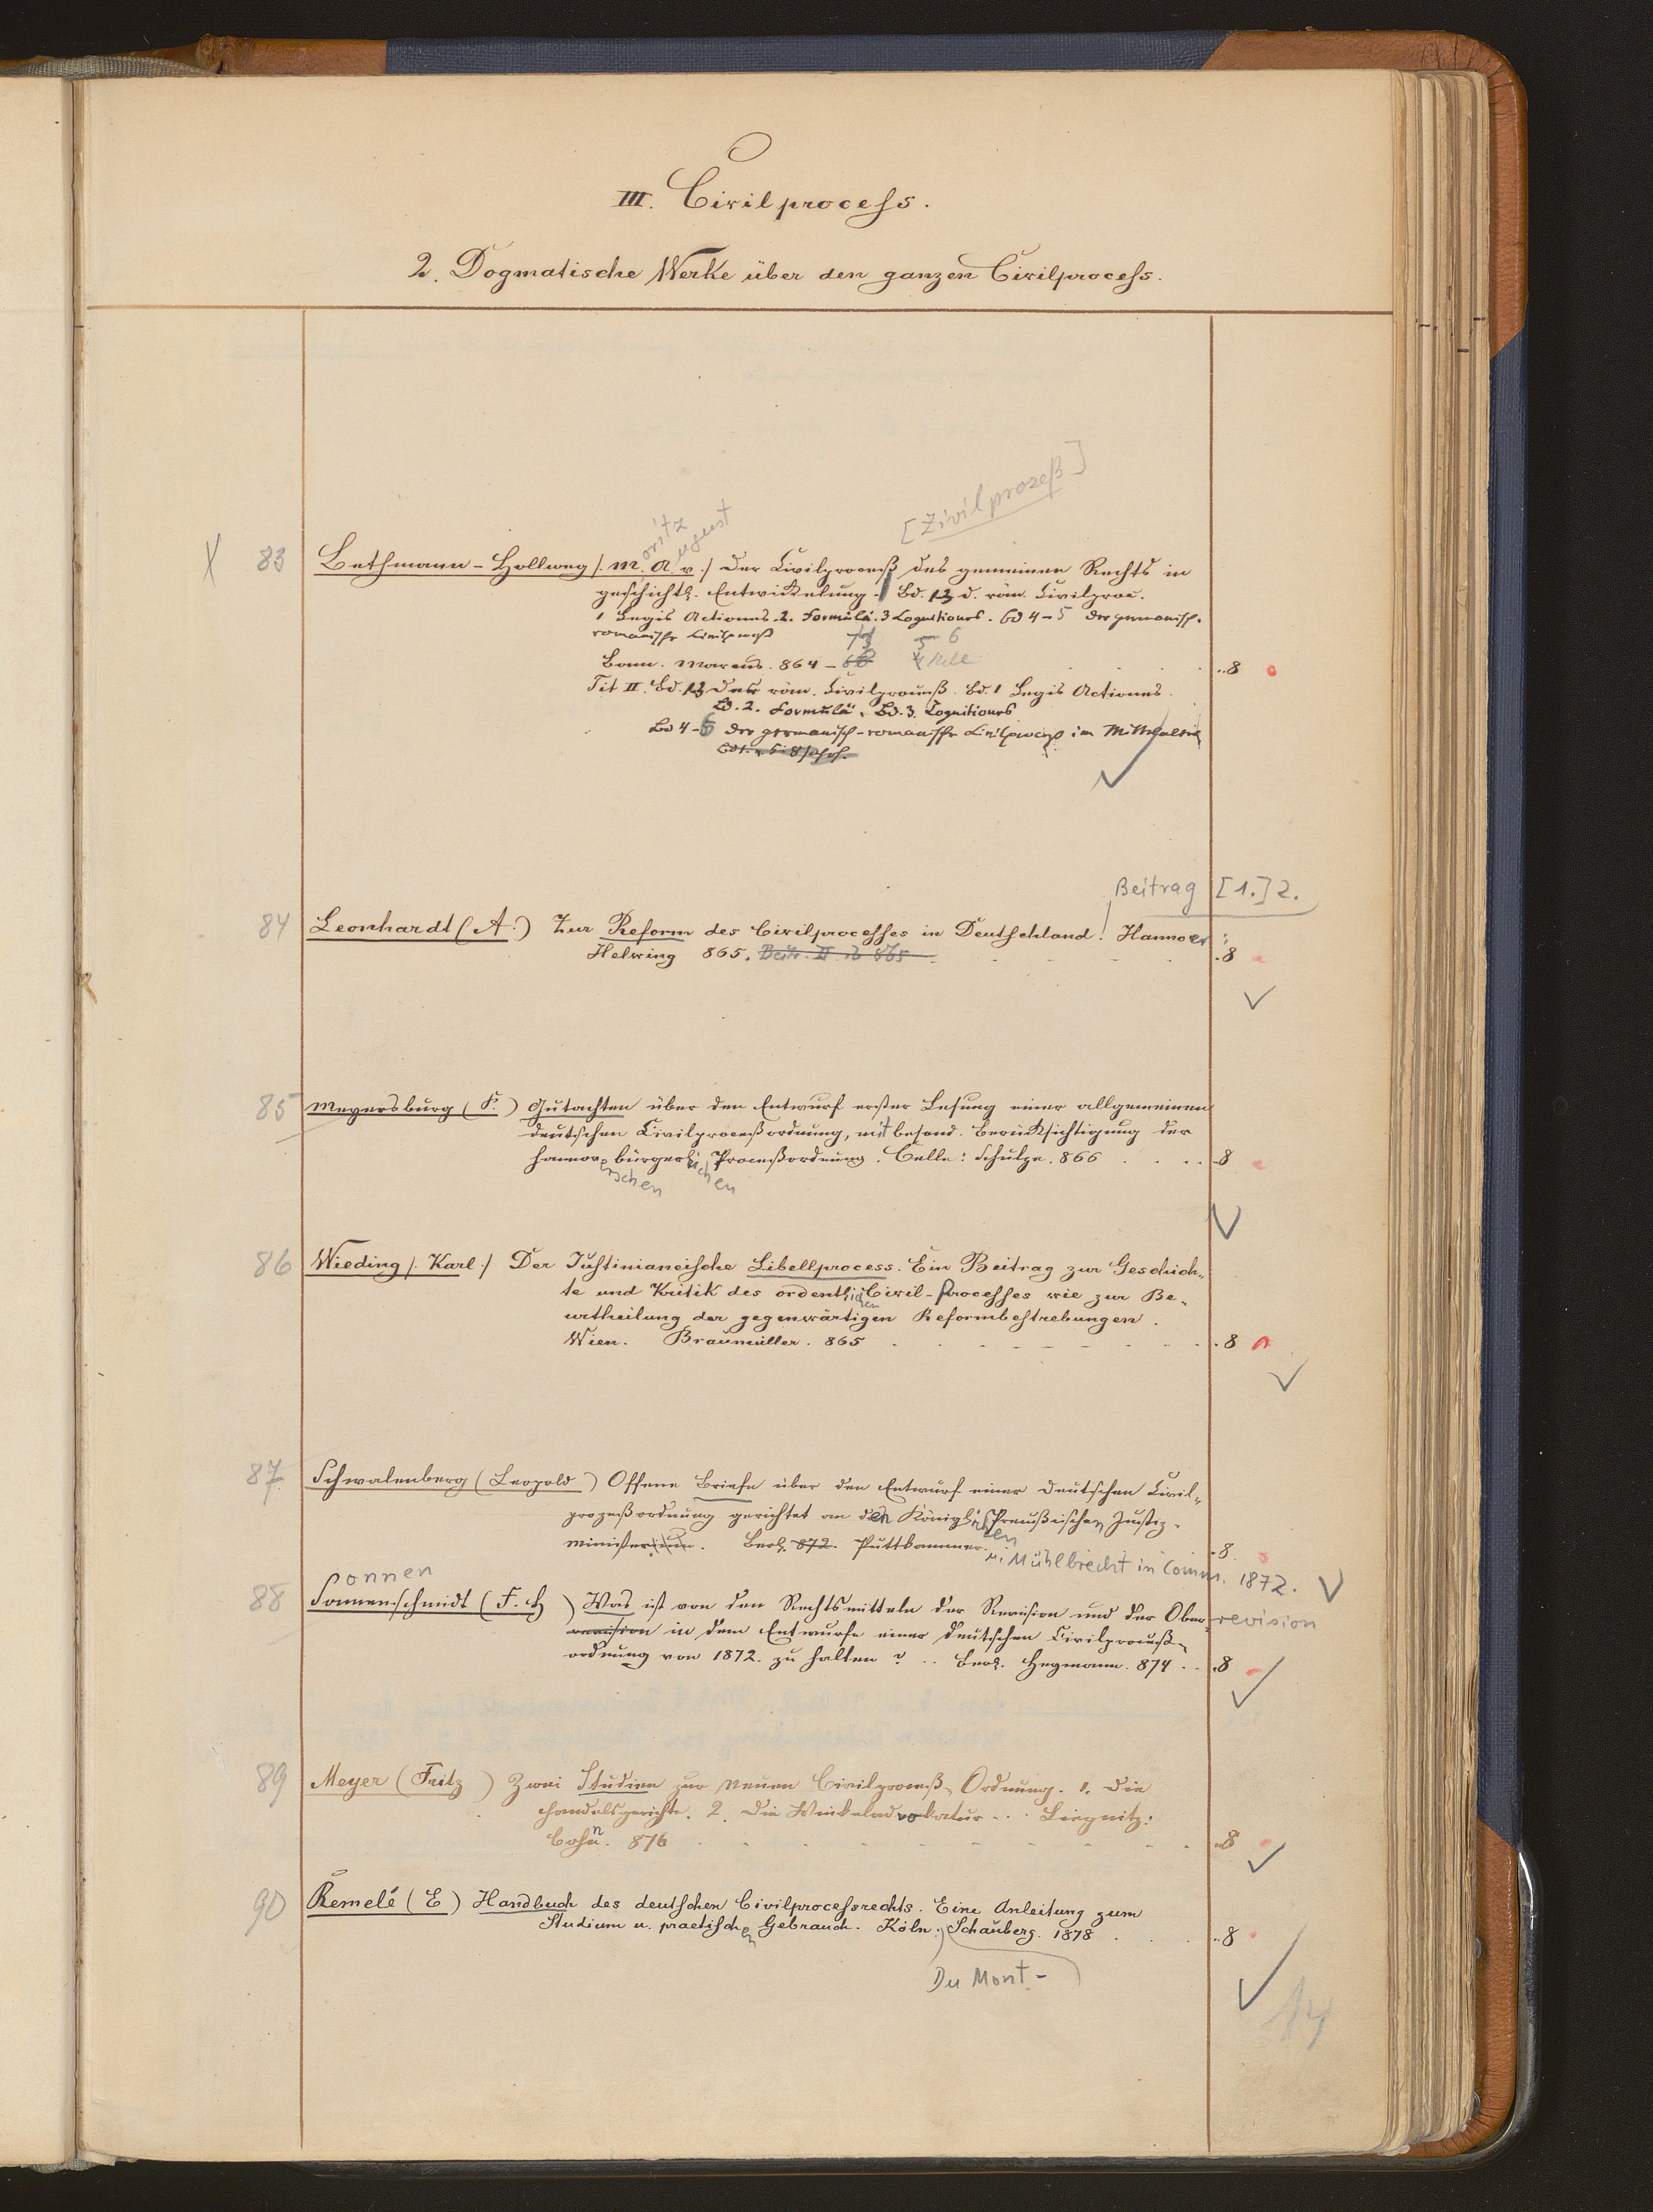 III. Civilprocess.
2. Dogmatische Werke über den ganzen Civilprocess.
[Zivilprozeß]
oritz ugust
83 Bethmann-Hollweg /. M. A. v./ Der Civilproceß des gemeinen Rechts in
geschichtl. Entwickelung. Bd. 1-3 d. röm. Civilproc.
1 Legis Actiones. 2. Formulä. 3 Cognitiones. Bd 4-5 der germanisch-
romanische Civilproceß
Bonn. Marcus. 864- ..8
Tit II. Bd. 1-3 Der röm. Civilproceß. Bd. 1 Legis Actiones.
Bd. 2. Formulä. Bd. 3. Cognitiones
Bd 4-6 der germanisch-romanische Civilproceß im Mittelalter
Beitrag [1.] 2.
84 Leonhardt (A.) Zur Reform des Civilprocesses in Deutschland! Hannover:
Helwing 865. Beitr. II ib 865 .8
85 Meyersburg (F.) Gutachten über den Entwurf erster Lesung einer allgemeinen
deutschen Civilproceßordnung, mit besond. Berücksichtigung der
hannoverschen bürgerlichen Proceßordnung. Celle: Schulze. 866 ..8
86 Wieding /. Karl./ Der Justinianeische Libellprocess. Ein Beitrag zur Geschich-
te und Kritik des ordentlichen Civil-Processes wie zur Be-
urtheilung der gegenwärtigen Reformbestrebungen.
Wien. Braumüller. 865 .8
87 Schwalenberg (Leopold) Offene Briefe über den Entwurf einer deutschen Civil-
prozeßordnung gerichtet an den Königlichen Preußischen Justiz-
minister. Berl. 872. Puttkammer. .8
u. Mühlbrecht in Comm. 1872.
Sonnen
88 Sonnenschmidt (F. H) Was ist von den Rechtsmitteln der Revision und der Ober-revision
revision in dem Entwurfe einer deutschen Civilproceß-
ordnung von 1872. zu halten? .. Berl. Heymann. 874 .. .8
89 Meyer (Fritz) Zwei Studien zur neuen Civilproceß-Ordnung. 1. Die
Handelsgerichte. 2. Die Winkeladvokatur ... Liegnitz:
Cohn. 876 ..8
90 Remelé (E) Handbuch des deutschen Civilprocessrechts. Eine Anleitung zum
Studium u. practischen Gebrauch. Köln: Schauberg. 1878 ..8
Du Mont-
14